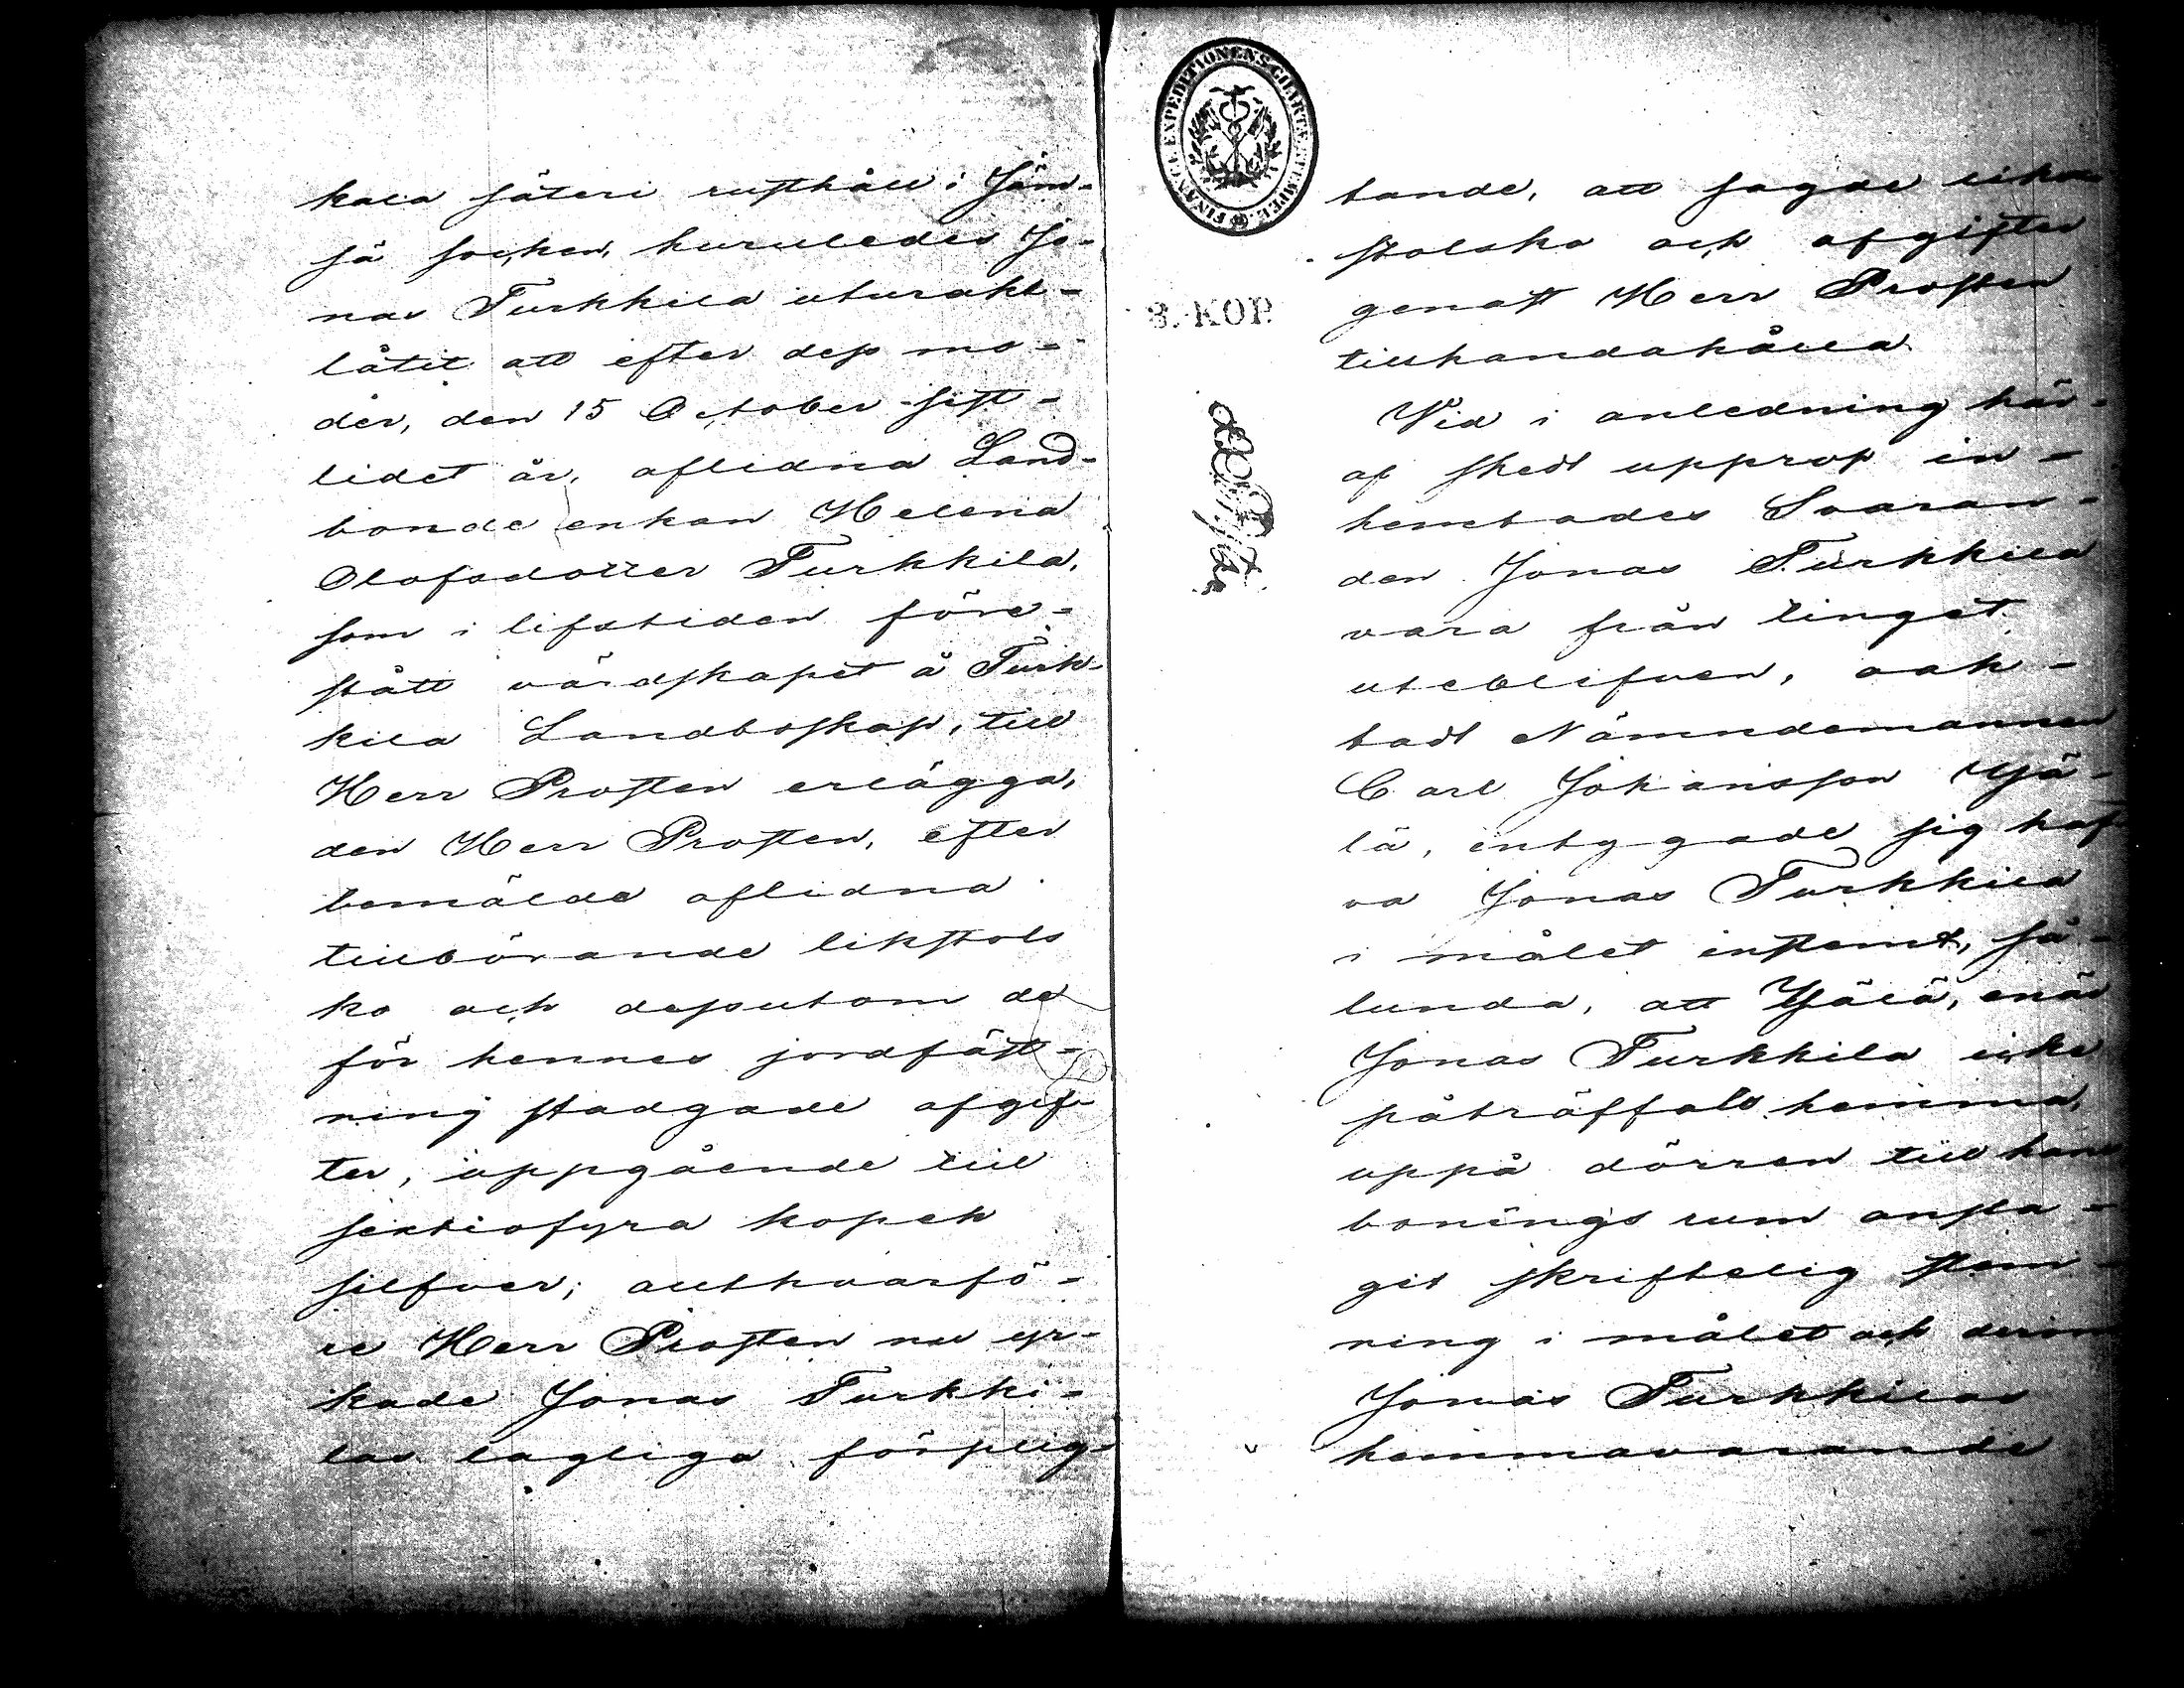 kala säteri rusthåll i Jäm-
sä socken, huruledes Jo-
nas Turkkila uturakt-
låtit att efter dess mo-
der, den 15 October sist-
lidet år, aflidna Land-
bonde enkan Helena
Olofsdotter Turkkila,
som i lifstiden före-
stått värdskapet å Turk-
kila Landboskap, till
Herr Prosten erlägga,
den Herr Prosten, efter
bemälde aflidna
tillbörande likstols
ko och dessutom de
för hennes jordfäst-
ning stadgade afgif-
ter, uppgående till
sextiofyra kopek
silfver; allthvarfö-
re Herr Prosten nu yr-
kade Jonas Turkki-
las lagliga förplig-
FINANCE EXPEDITIONENS CHARTÆ STEMPEL
3. KOP.
tande, att sagde lik-
stolsko och afgifter
genast Herr Prosten
tillhandahålla
Vid i anledning här-
af skedt upprop in-
hemtades Svaran-
den Jonas Turkkila
vara från tinget
utebliven, oak-
tadt Nämndemannen
Carl Johansson Yjä-
lä, intygade sig haf-
va Jonas Turkkila
i målet instemt, så-
lunda, att Yjälä, enär
Jonas Turkkila icke
påträffats hemma,
uppå dörren till hans
bonings rum ansla-
git skriftelig stem-
ning i målet och derom
Jonas Turkkilas
hemmavarande